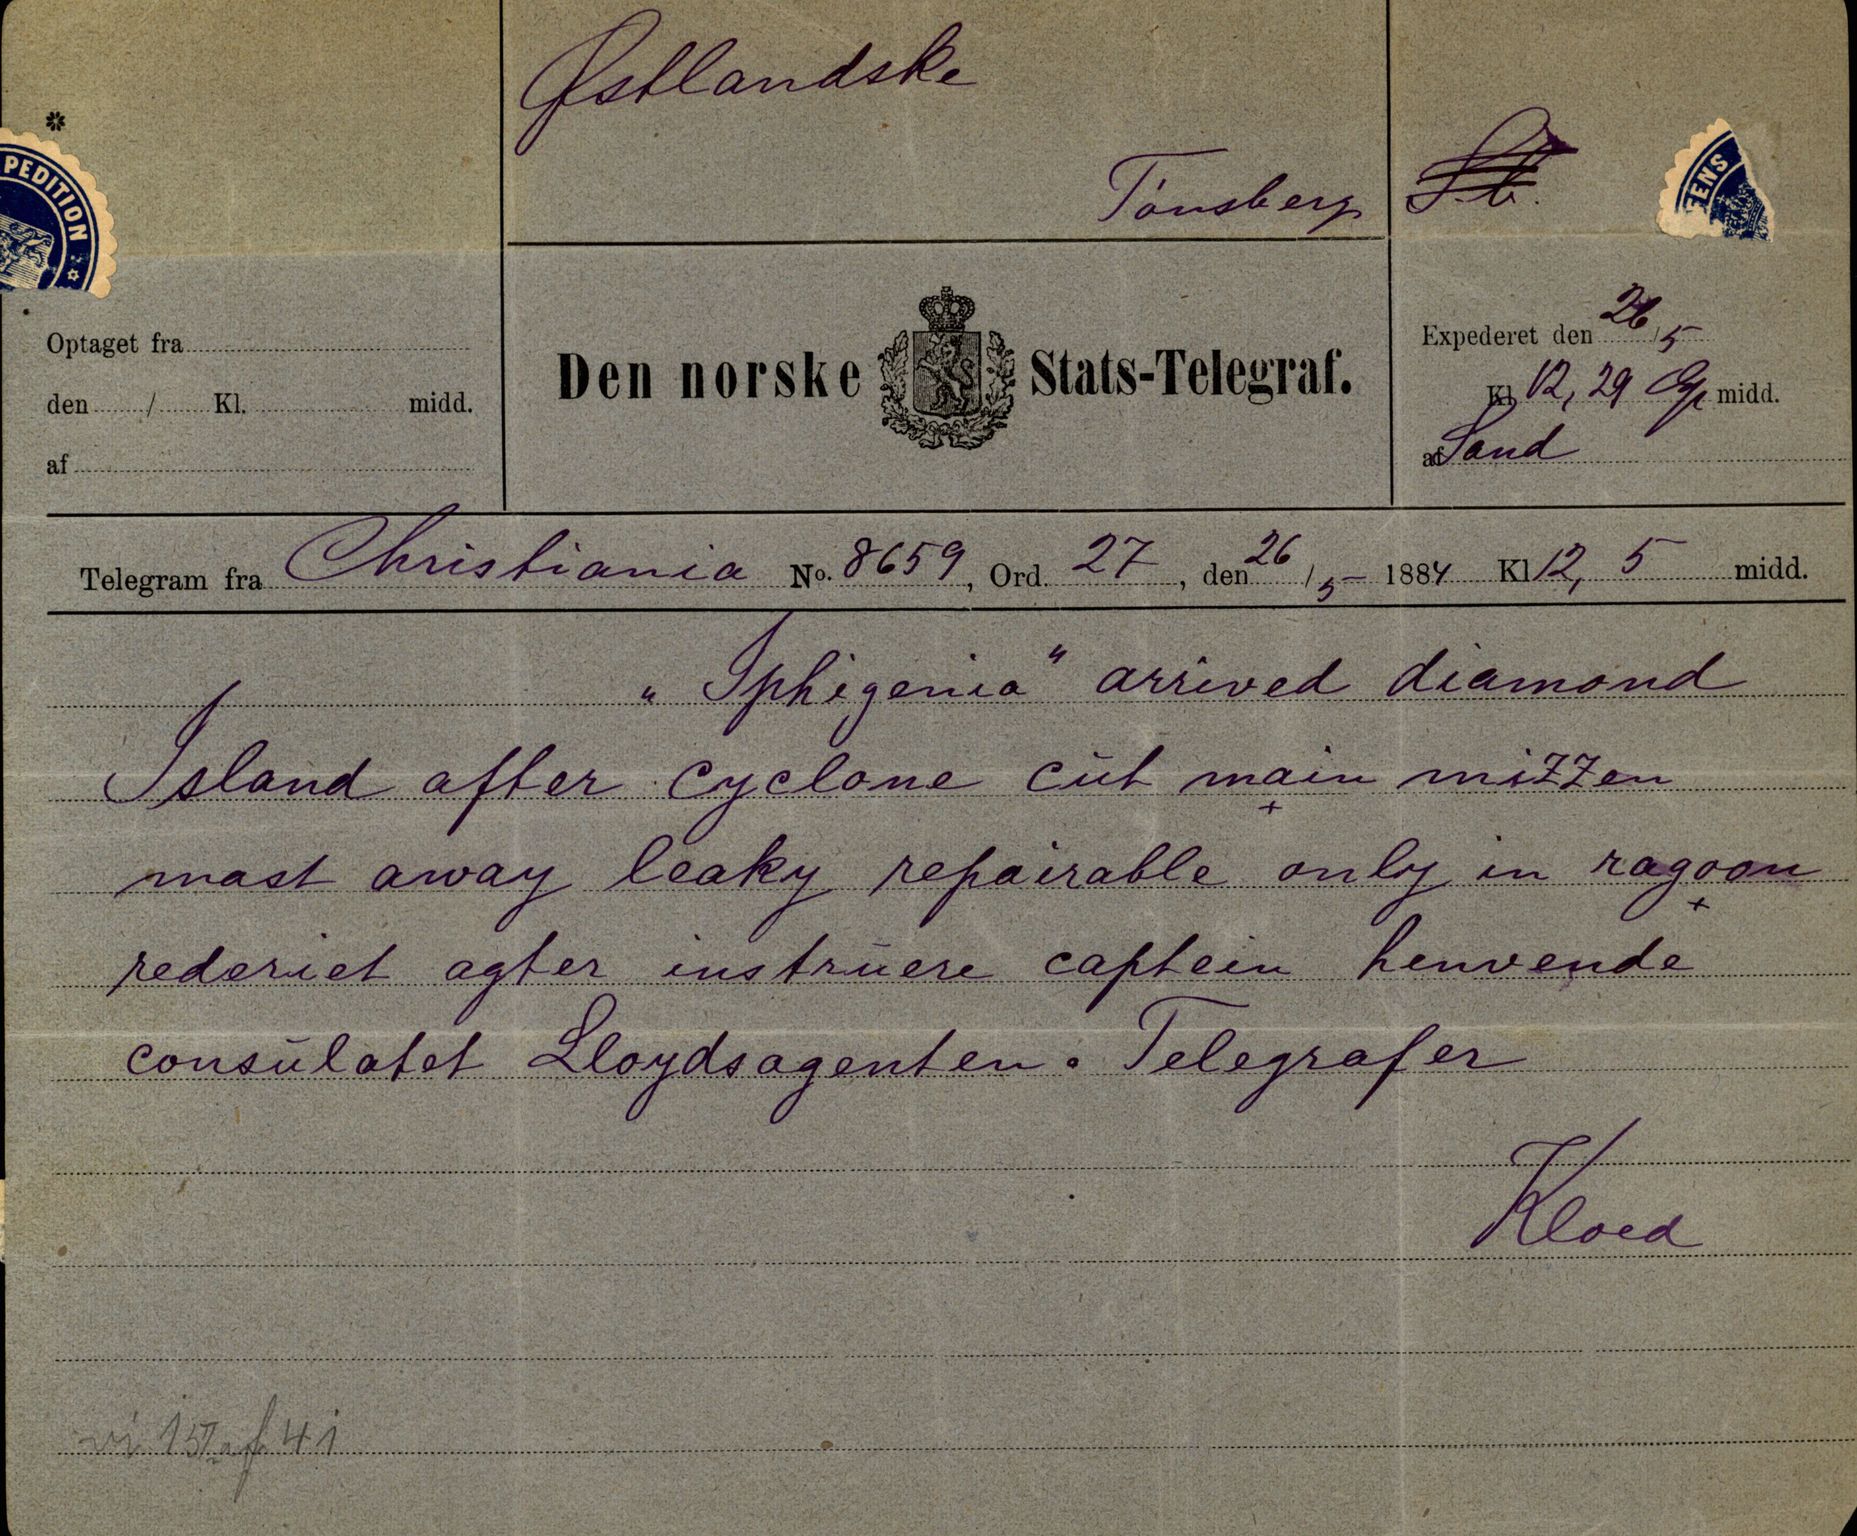 Østlandske
Tönsberg
*
PEDITION
ENS
Optaget fra
den / Kl. midd.
af
Den norske Stats-Telegraf.
Expederet den 26/5
Kl 12,29 midd.
af Sand
Telegram fra Christiania No. 8659, Ord. 27, den 26/5 1884 Kl 12,5 midd.
„Iphigenia" arrived diamond
Island after cyclone cūt main mizzen
mast away leaky repairable only in ragoon
rederiet agter instrūere captein henvende
consūlatet Lloydsagenten. Telegrafer
Kloed